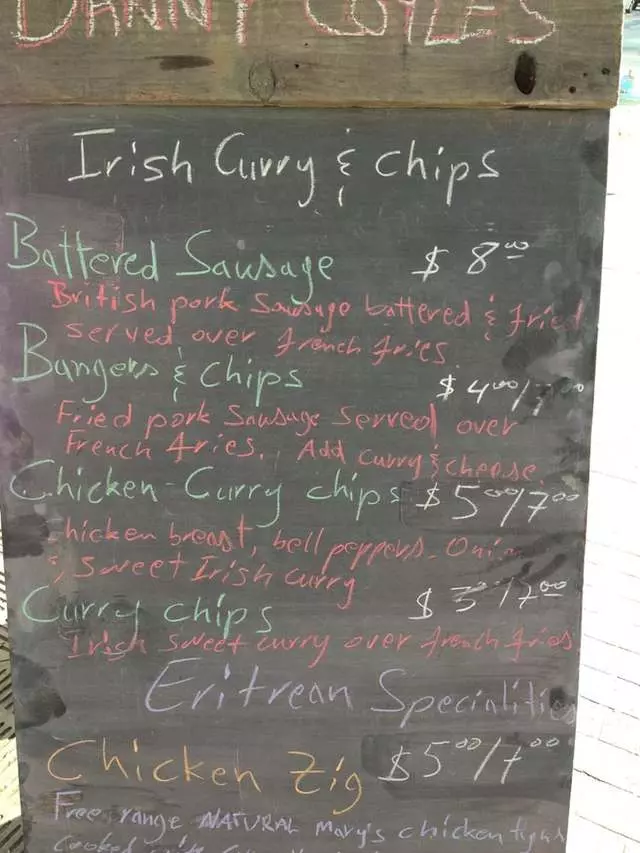 DANNY COYLES
Irish Curry & chips
Battered Sausage $ 8.00
British pork Sausage battered & fried
served over french fries
Bangers & chips $ 4.00/7.00
Fried pork Sausage served over
French fries. Add curry & cheese.
Chicken-Curry chips $5.00/7.00
chicken breast, bell peppers.
& sweet Irish curry
Curry chips $ 3/7.00
Irish sweet curry over french fries
Eritrean Specialities
Chicken Zig $5.00/7.00
Free range NATURAL Mary's chicken